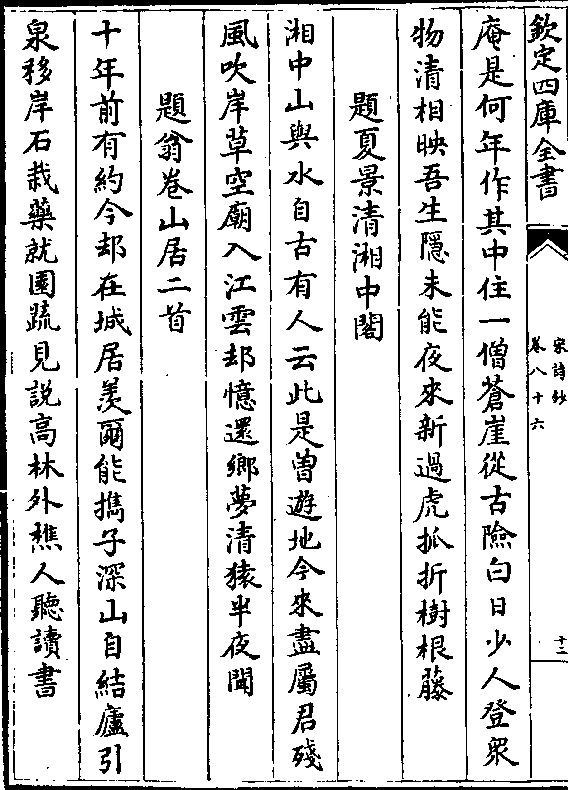 欽定四庫全書
宋詩鈔
卷八十六
十二
庵是何年作其中住一僧蒼崖從古險白日少人登衆
物清相映吾生隱未能夜來新過虎抓折樹根藤
題夏景清湘中閣
湘中山與水自古有人云此是曾遊地今來盡屬君殘
風吹岸草空廟入江雲却憶還鄉夢清猿半夜聞
題翁卷山居二首
十年前有約今却在城居羨爾能攜子深山自結廬引
泉移岸石栽藥就園蔬見説高林外樵人聽讀書